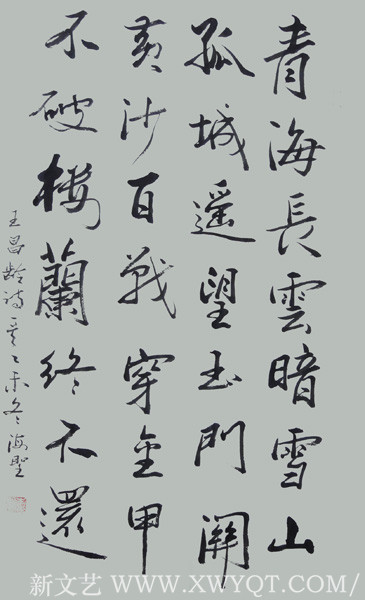 青海長雲暗雪山
孤城遥望玉門關
黄沙百戰穿金甲
不破楼蘭終不還
王昌龄詩
海聖
新文艺 WWW.XWYQT.COM/